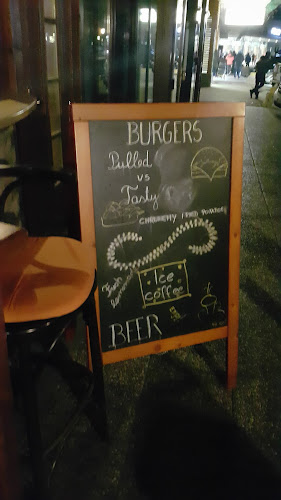 BURGERS
Pulled
vs
Tasty
CHROUMFTY FRIED POTATOES
Fresh
Ice
coffee
BEER